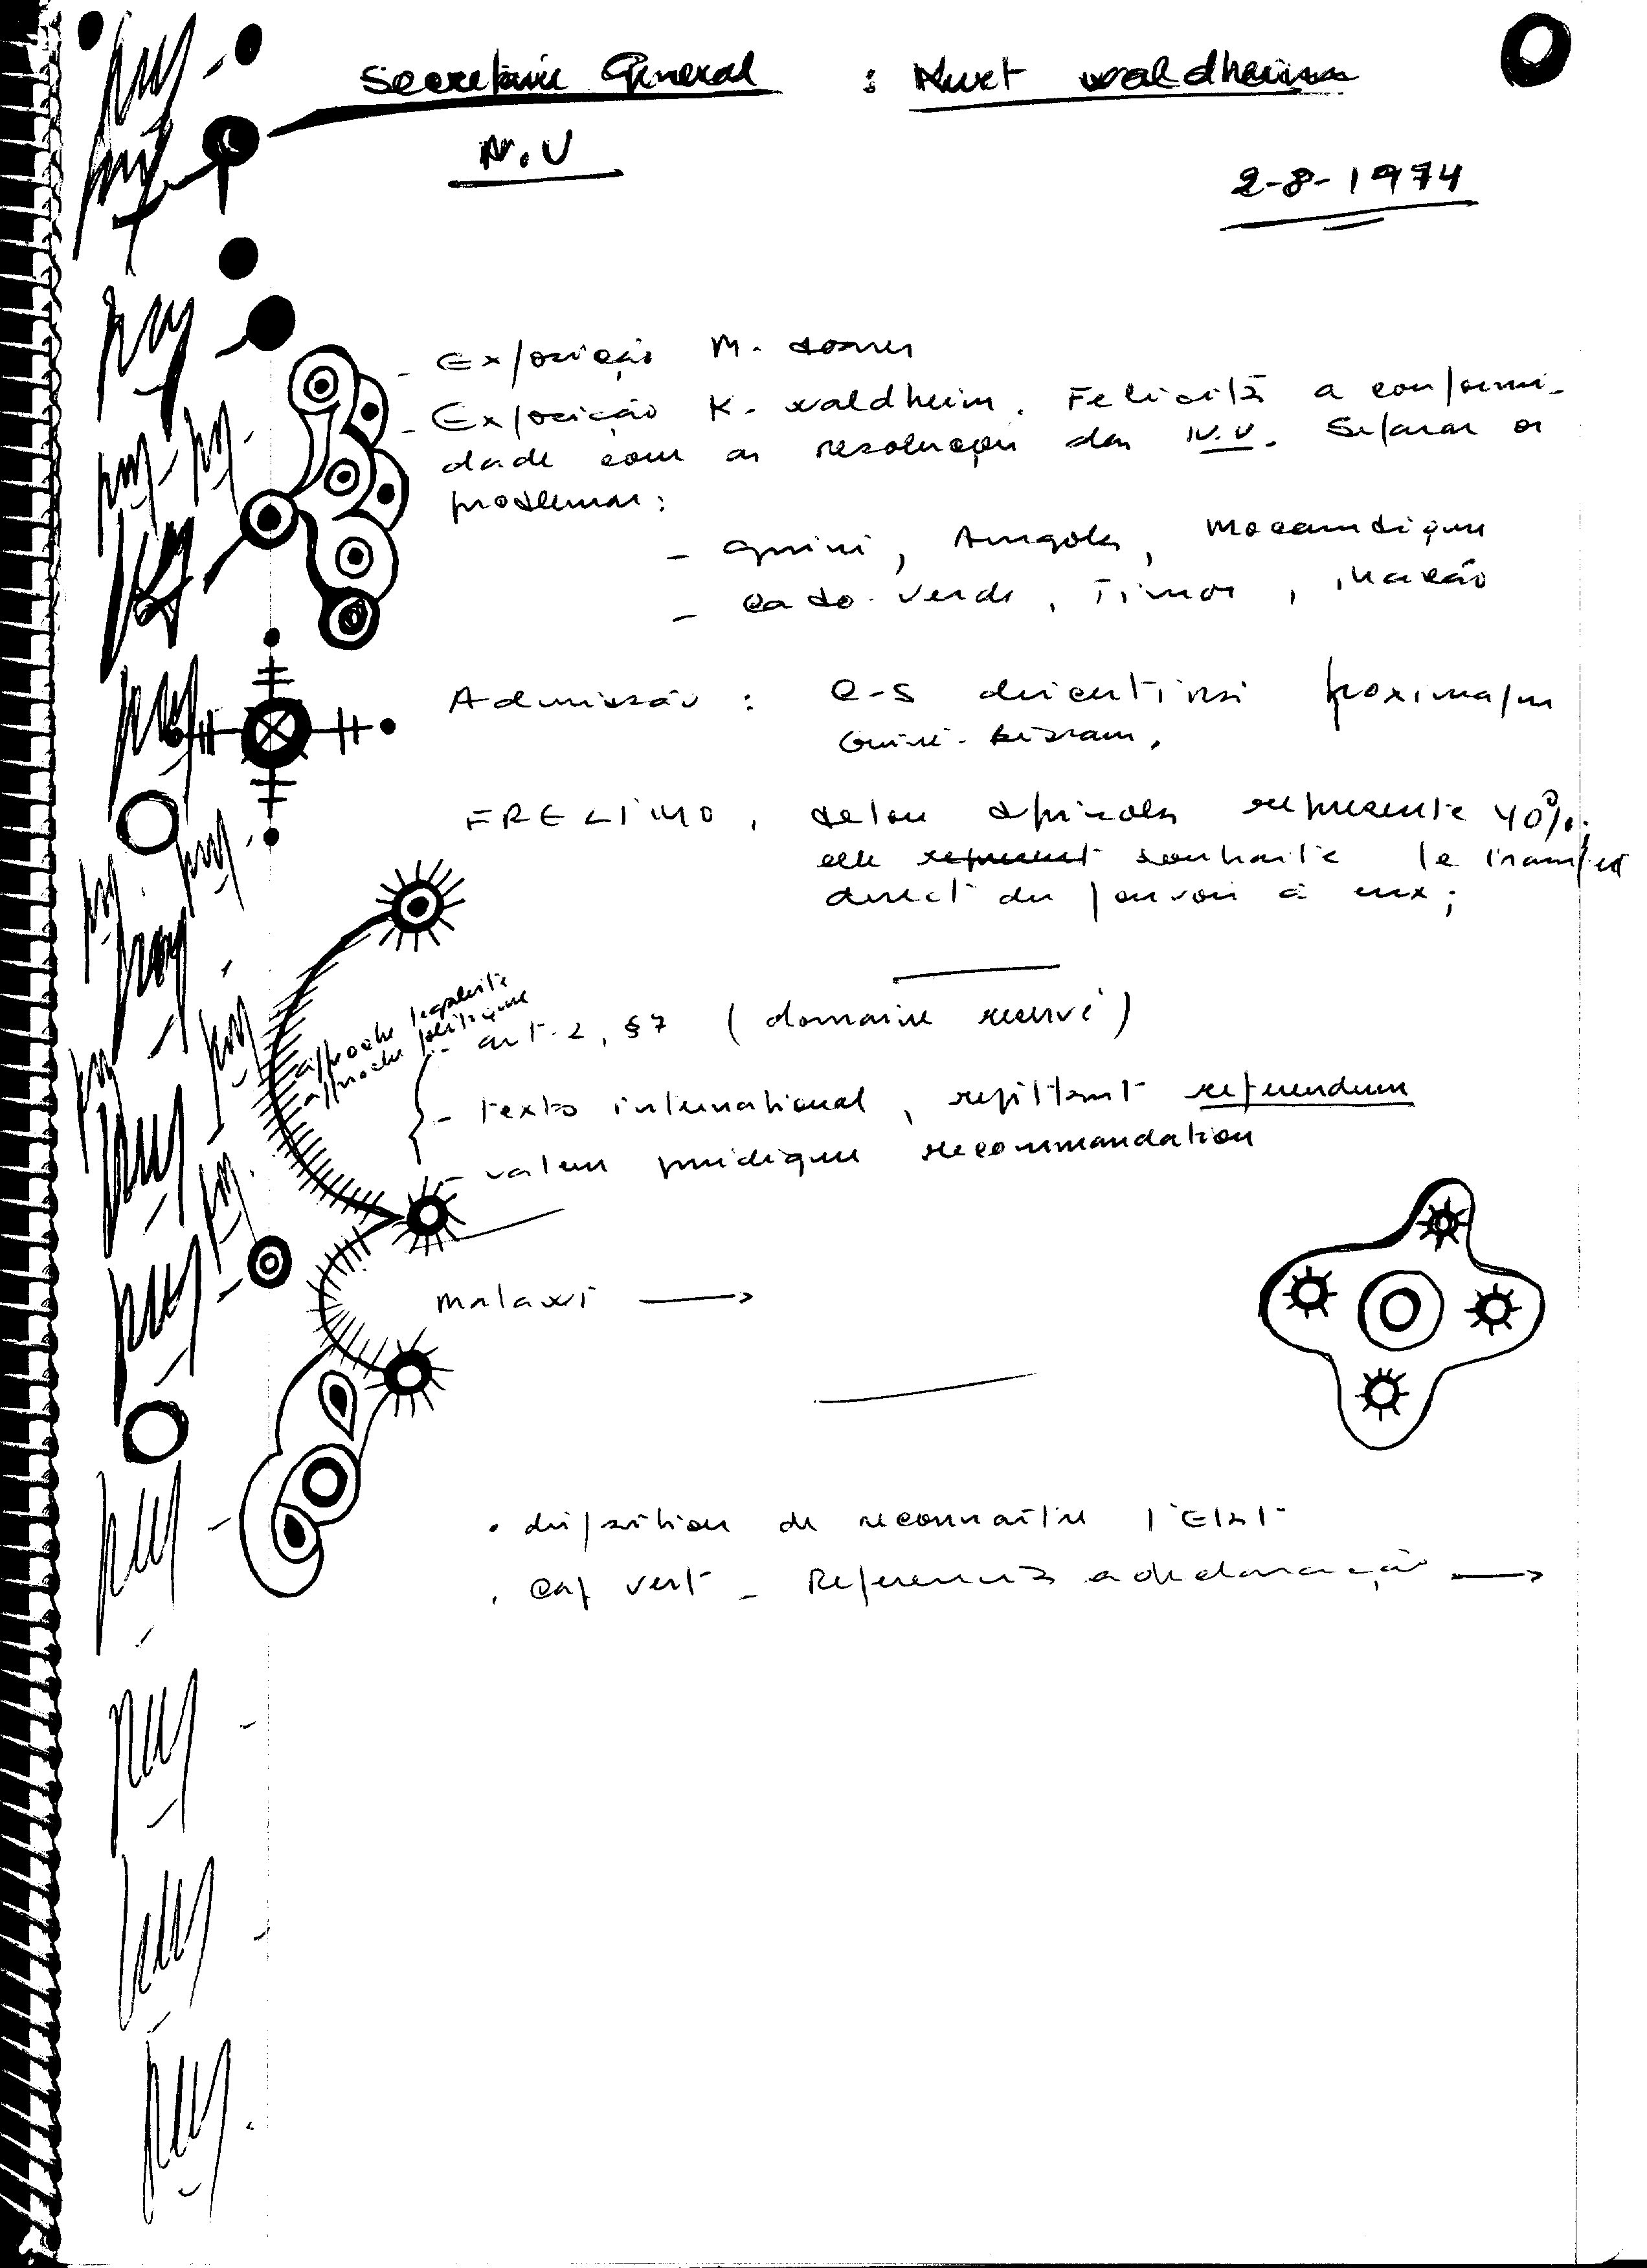 Secretaire General : Kurt Waldheim
N.U
2-8-1974
- Exposição M. Soares
- Exposição K. Waldheim. Felicità a conformi-
dade com as resoluções das N.U. Separar os
problemas:
- Guiné, Angola, Moçambique
- Cabo-Verde, Timor, Macão
Admissão : C-S
Guiné-Bissau.
FRELIMO, selon Spinola represente 40%.
elle represent souhaite le transfert
direct du pouvoir à eux;
approche legaliste
approche politique
- art. 2, §7 (domaine reservé)
- texto international, referendum
- valeur juridique recommandation
Malawi →
• disposition de reconnaître l'Etat
. Cap Vert - Referencia a declaração →